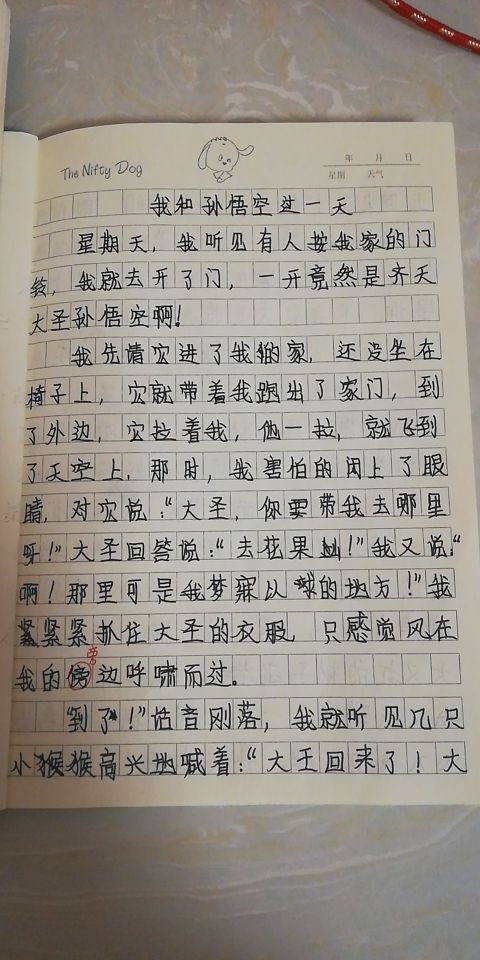 The Nifty Dog
年 月 日
星期 天气
我和孙悟空过一天
星期天，我听见有人按我家的门
铃，我就去开了门，一开竟然是齐天
大圣孙悟空啊！
我先请它进了我的家，还没坐在
椅子上，它就带着我跑出了家门，到
了外边，它拉着我，他一拉，就飞到
了天空上，那时，我害怕的闭上了眼
睛，对它说：“大圣，你要带我去哪里
呀！”大圣回答说：“去花果山！”我又说：“
啊！那里可是我梦寐以求的地方！”我
紧紧紧抓住大圣的衣服，只感觉风在
旁
我的傍边呼啸而过。
“到了！”话音刚落，我就听见几只
小猴猴高兴地喊着：“大王回来了！大